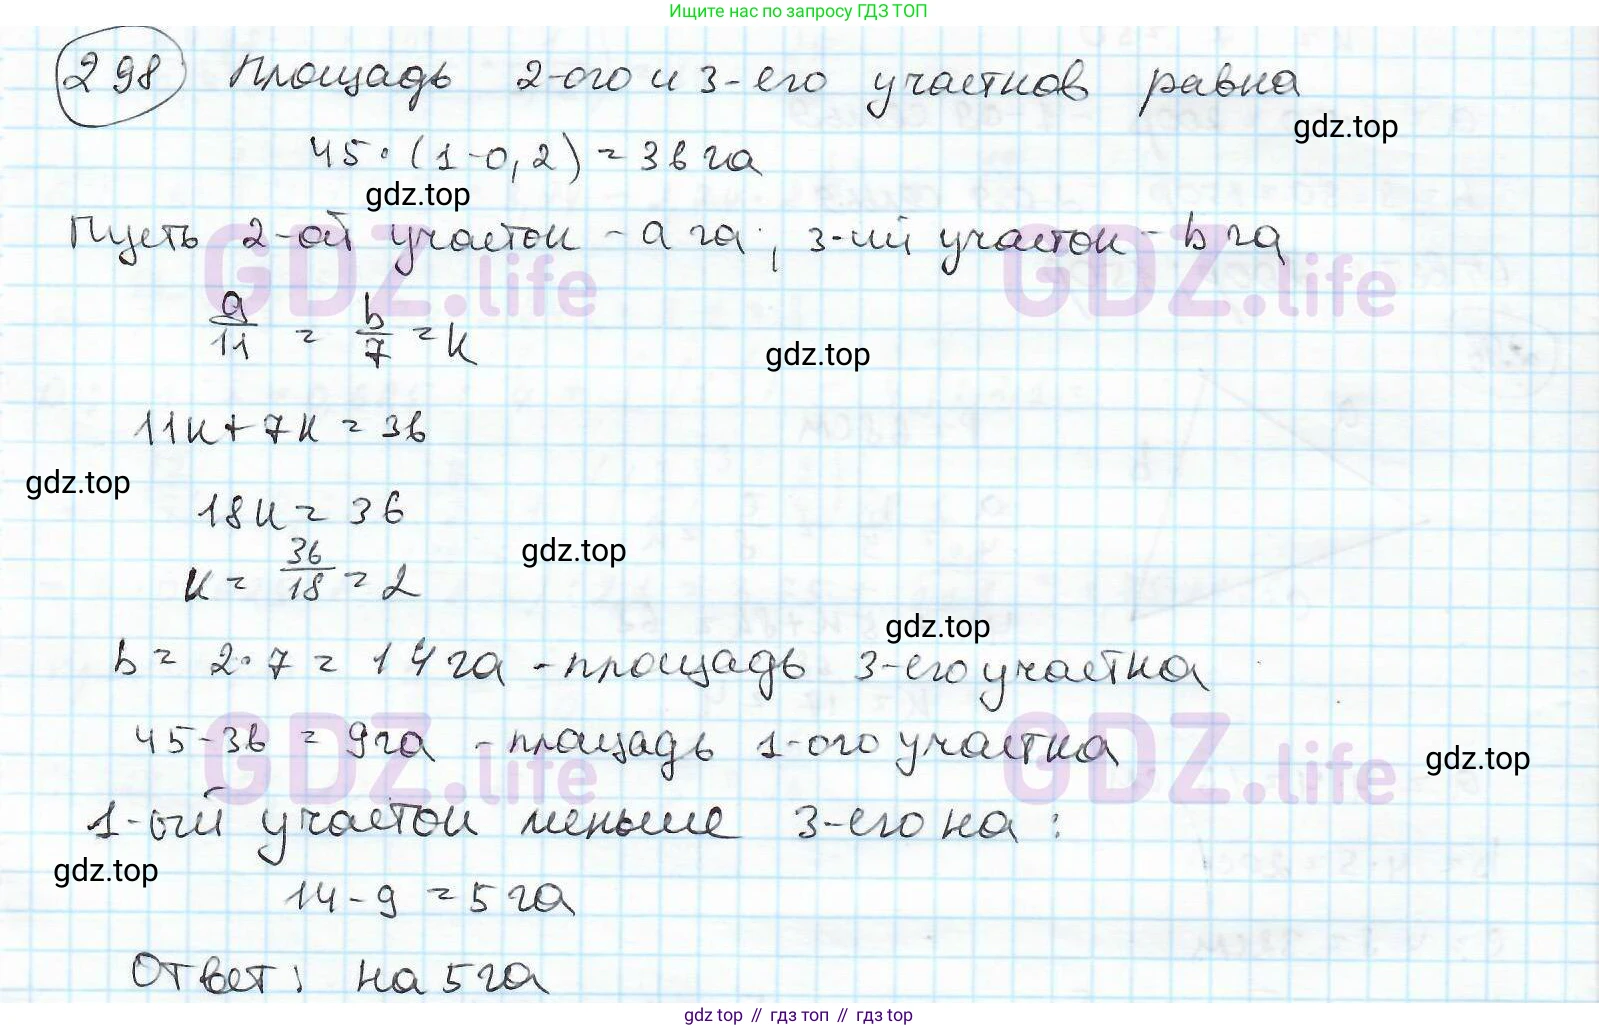 Ищите нас по запросу ГДЗ ТОП
298 Площадь 2-ого и 3-его участков равна
gdz.top
45·(1-0,2)=36 га
gdz.top
Пусть 2-ой участок - a га, 3-ий участок - b га
GDZ.life GDZ.life
a/11 = b/7 = k
gdz.top
11k+7k=36
gdz.top
18k=36
gdz.top
k=36/18=2
gdz.top
b=2·7=14 га - площадь 3-его участка
GDZ.life GDZ.life
45-36=9 га - площадь 1-ого участка
gdz.top
1-ый участок меньше 3-его на:
gdz.top
14-9=5 га
Ответ: на 5 га
gdz top // гдз топ // gdz top